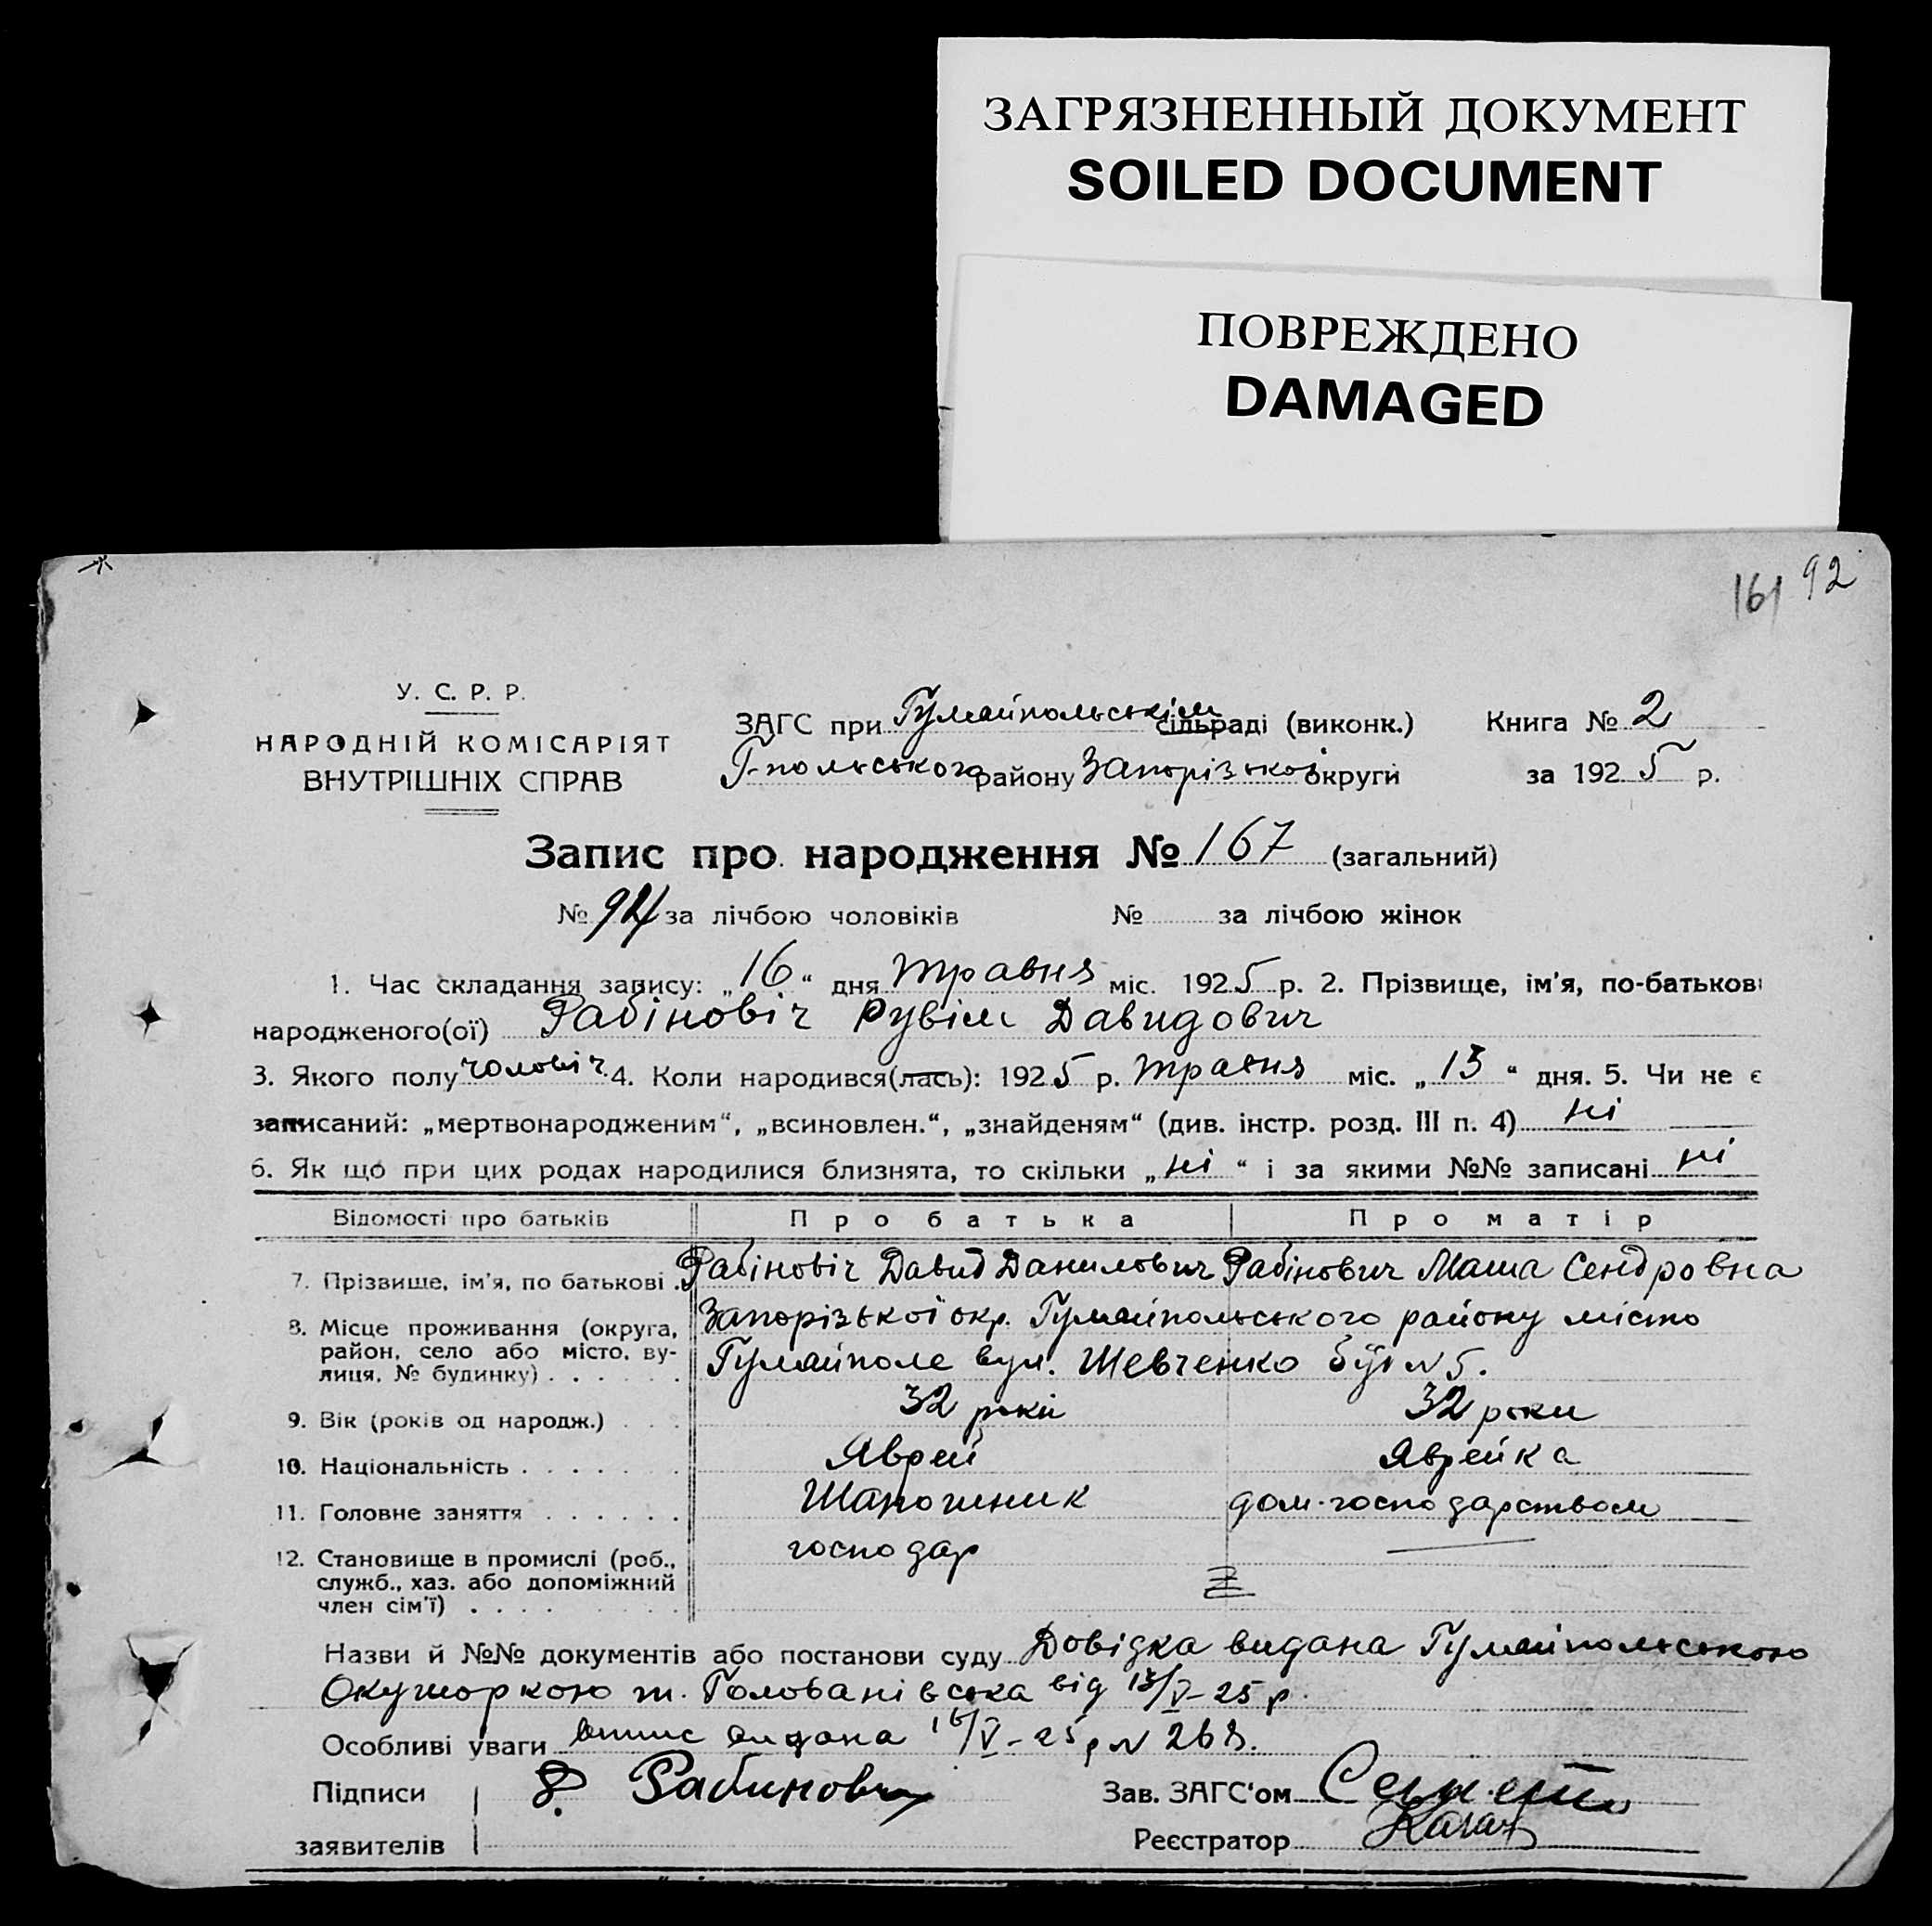 ЗАГРЯЗНЕННЫЙ ДОКУМЕНТ
SOILED DOCUMENT
ПОВРЕЖДЕНО
DAMAGED
161 92
У. С. Р. Р.
НАРОДНІЙ КОМІСАРІЯТ
ВНУТРІШНІХ СПРАВ
ЗАГС при Гуляйпольськім сільраді (виконк.) Книга № 2
Г-польського району Запорізької округи за 1925 р.
Запис про народження № 167 (загальний)
№ 92 за лічбою чоловіків № за лічбою жінок
1. Час складання запису: „16“ дня травня міс. 1925 р. 2. Прізвище, ім'я, по-батькові
народженого(ої) Рабінович Рувім Давидович
3. Якого полу чоловіч. 4. Коли народився(лась): 1925 р. травня міс. „13“ дня. 5. Чи не є
записаний: „мертвонародженим“, „всиновлен.“, „знайденям“ (див. інстр. розд. III п. 4) ні
6. Як що при цих родах народилися близнята, то скільки „ні“ і за якими №№ записані ні
Відомості про батьків Про батька Про матір
7. Прізвище, ім'я, по батькові Рабіновіч Давид Данилович Рабінович Маша Сендровна
8. Місце проживання (округа, район, село або місто, вулиця, № будинку) Запорізької окр. Гуляйпольського району місто
Гуляйполе вул. Шевченко буд N 5.
9. Вік (років од народж.) 32 роки 32 роки
10. Національність Яврей Яврейка
11. Головне заняття Шапошник дом-господарством
12. Становище в промислі (роб., служб., хаз. або допоміжний член сім'ї) господар
Назви й №№ документів або постанови суду Довідка видана Гуляйпольською
Окушоркою т. Голованівська від 13/V-25 р.
Особливі уваги витис видана 16/V-25 р N 268.
Підписи Рабинович Зав. ЗАГС'ом
заявителів Реєстратор